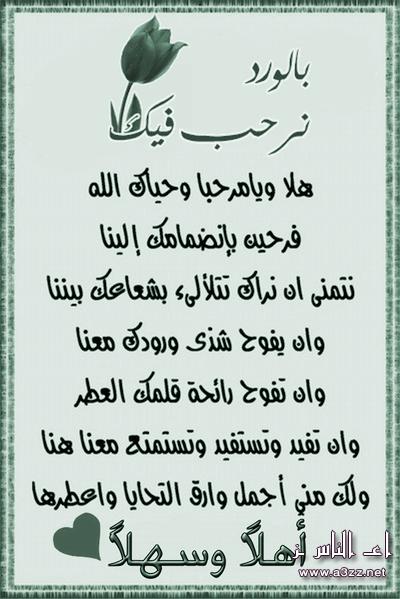 بالورد
نرحب فيك
هلا ويامرحبا وحياك الله
فرحين بإنضمامك إلينا
نتمنى ان نراك تتلألىء بشعاعك بيننا
وان يفوح شذى ورودك معنا
وان تفوح رائحة قلمك العطر
وان تفيد وتستفيد وتستمتع معنا هنا
ولك مني أجمل وارق التحايا واعطرها
أهلاً وسهلاً
الناس
www.a3zz.net